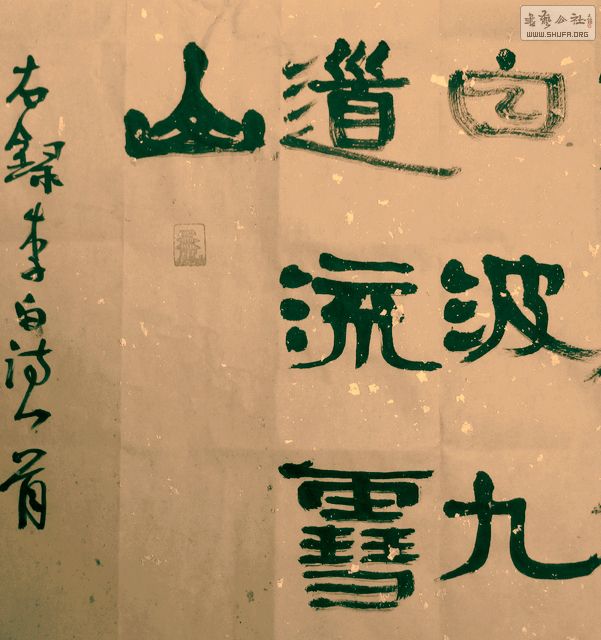 白波九
道流雪
山
右錄李白詩一首
書藝公社
WWW.SHUFA.ORG